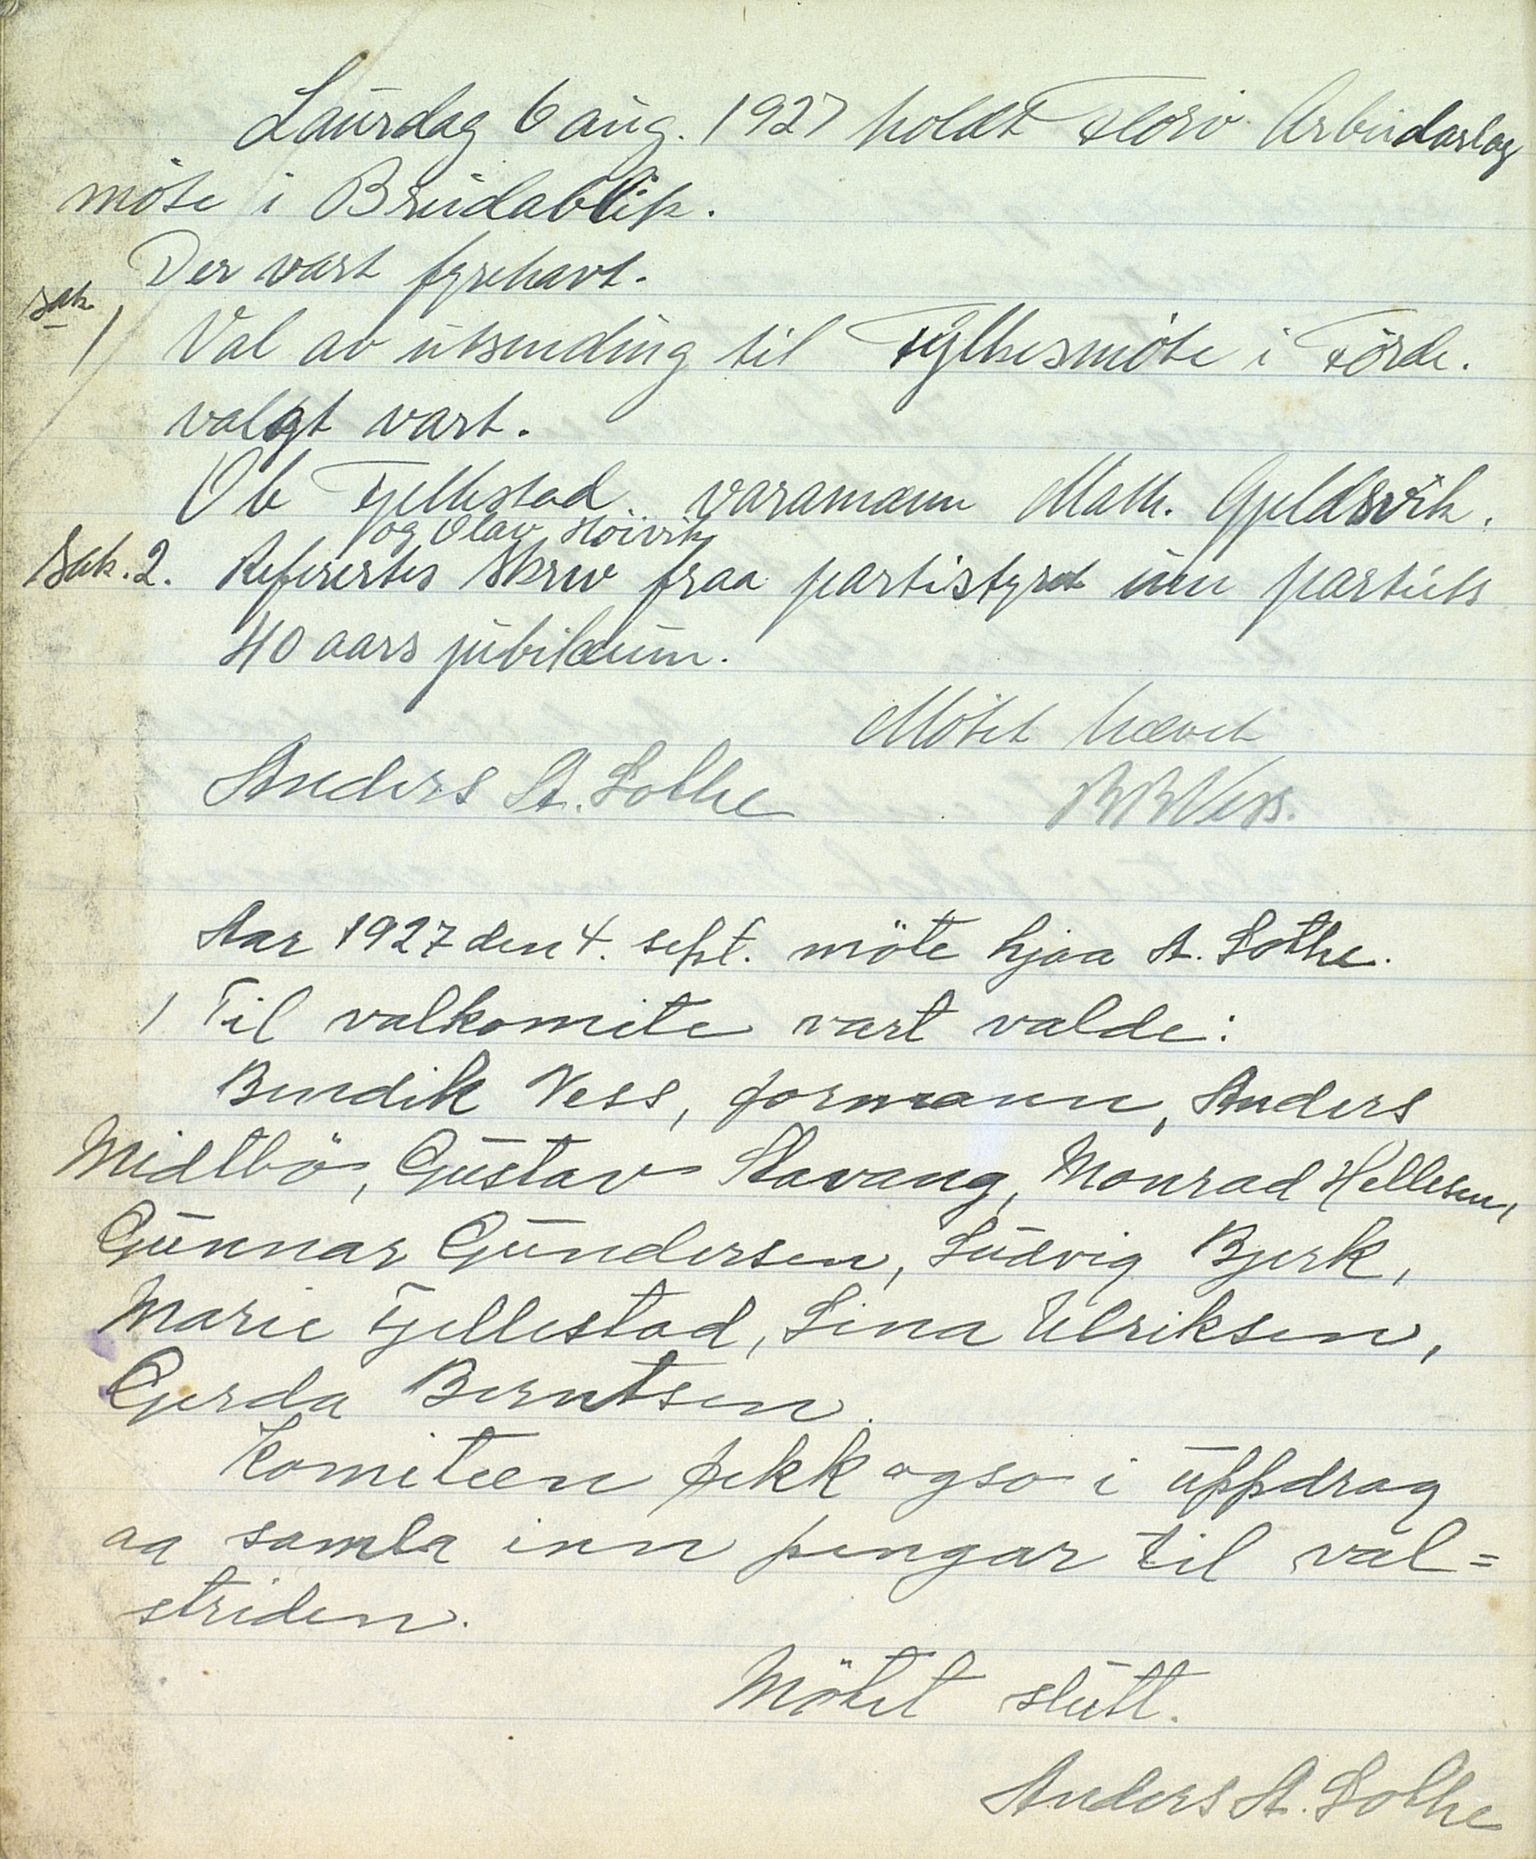 Laurdag 6 aug. 1927 holdt Florø Arbeidarlag
møte i Breidablik.
Der vart fyrehavt.
Sak
1/ Val av utsending til Fylkesmøte i Førde.
valgt vart.
Ob Fjellestad varamann Math. Gjeldsvik.
og Olav Høivik
Sak. 2. Referertes skriv fraa partistyret um partiets
40 aars jubilæum.
Møtet hævet
Anders A. Lothe BBVess.
Aar 1927 den 4. sept. möte hjaa A. Lothe.
1 Til valkomite vart valde:
Bendik Vess, formann, Anders
Midtbö, Gustav Stavang, Monrad Hellesen,
Gunnar Gundersen, Ludvig Bjerk,
Marie Fjellestad, Lina Ulriksen,
Gerda Berntsen.
Komiteen fekk ogso i uppdrag
aa samla inn pengar til val=
striden.
Mötet slutt.
Anders A. Lothe